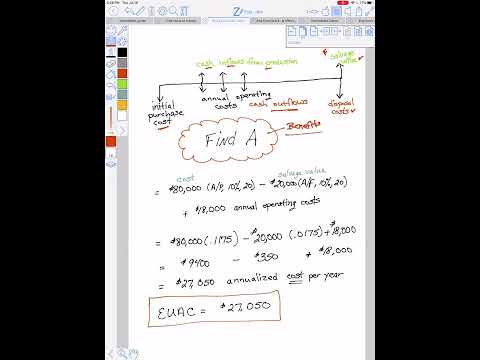 F
salvage value
cash inflows from production
initial purchase cost
annual operating costs
cash outflows
disposal costs
Benefits
Find A
cost
salvage value
= $80,000 (A/P, 10%, 20) - $20,000 (A/F, 10%, 20)
+ $18,000 annual operating costs
= $80,000 (.1175) - $20,000 (.0175) + $18,000
= $9400 - $350 + $18,000
= $27,050 annualized cost per year
EUAC = $27,050